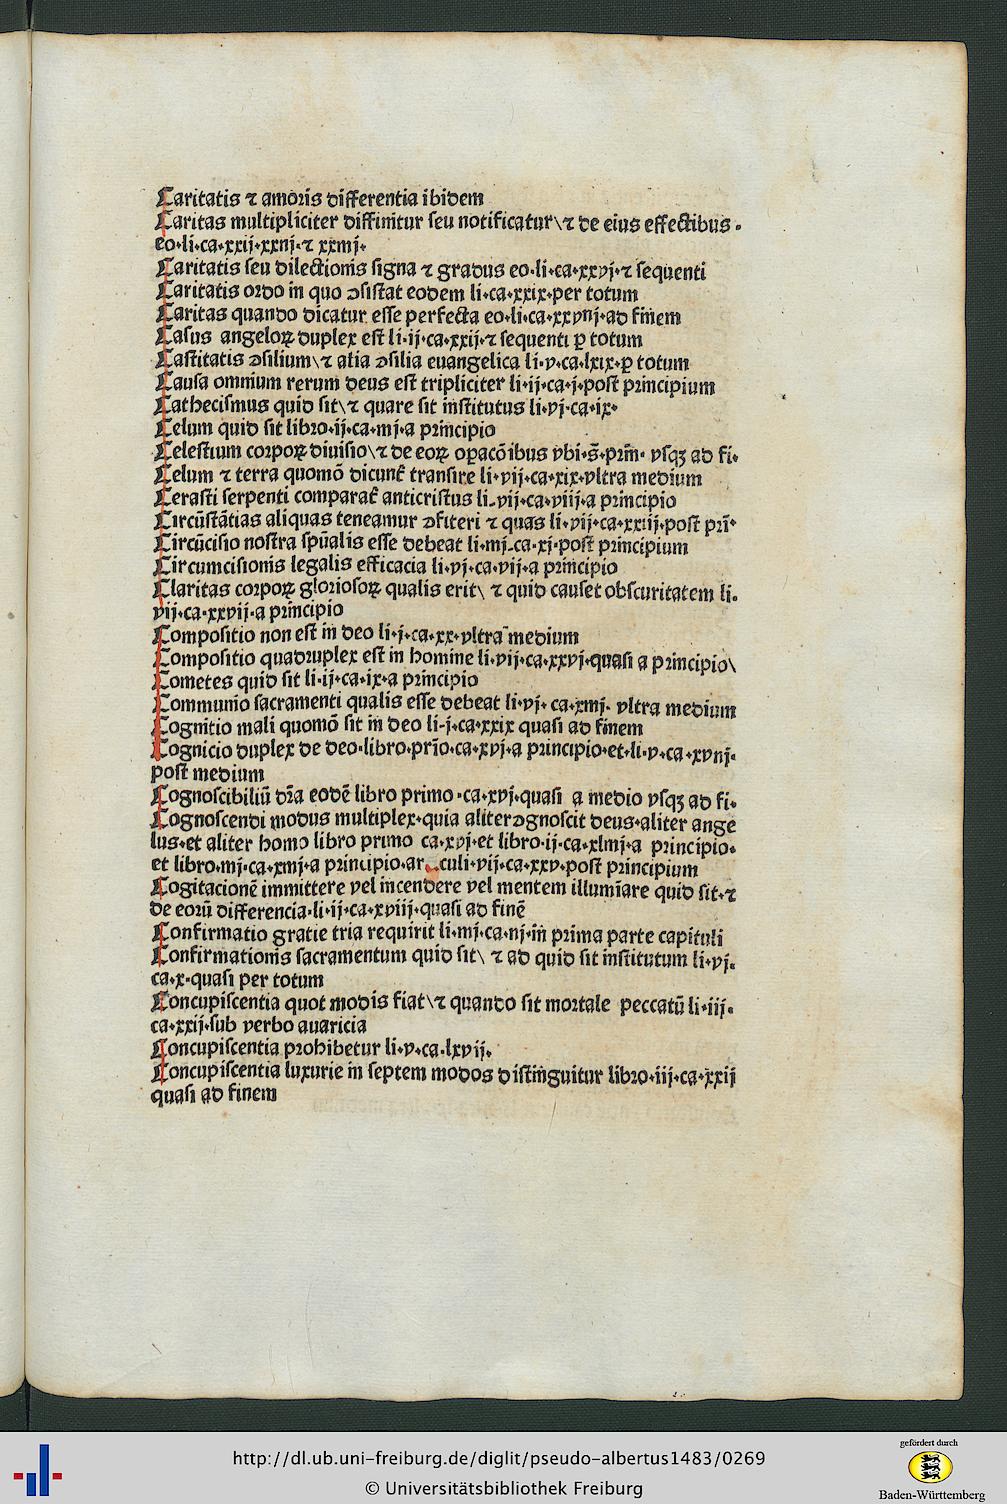 Caritatis ⁊ amoris differentia ibidem
Caritas multipliciter diffinitur seu notificatur\⁊ de eius effectibus .
eo.li.ca.xxij.xxiij.⁊ xxiiij.
Caritatis seu dilectionis signa ⁊ gradus eo.li.ca.xxvj.⁊ sequenti
Caritatis ordo in quo ꝯsistat eodem li.ca.xxix.per totum
Caritas quando dicatur esse perfecta eo.li.ca.xxviij.ad finem
Casus angeloꝝ duplex est li.ij.ca.xxij.⁊ sequenti ꝑ totum
Castitatis ꝯsilium\⁊ alia ꝯsilia euangelica li.v.ca.lxix.ꝑ totum
Causa omnium rerum deus est tripliciter li.ij.ca.j.post principium
Cathecismus quid sit\⁊ quare sit institutus li.vj.ca.ix.
Celum quid sit libro.ij.ca.iiij.a principio
Celestium corpoꝝ diuisio\⁊ de eoꝝ oꝑacōibus vbi.s̄.prīn. vsqꝫ ad fi.
Celum ⁊ terra quomō dicunt᷑ transire li.vij.ca.xix.vltra medium
Cerasti serpenti comparat᷑ anticristus li.vij.ca.viij.a principio
Circūstātias aliquas teneamur ꝯfiteri ⁊ quas li.vij.ca.xxiij.post prī.
Circūcisio nostra spūalis esse debeat li.iiij.ca.xj.post principium
Circumcisionis legalis efficacia li.vj.ca.vij.a principio
Claritas corpoꝝ glorioſoꝝ qualis erit\ ⁊ quid causet obscuritatem li.
vij.ca.xxvij.a principio
Compositio non est in deo li.j.ca.xx.vltra medium
Compositio quadruplex est in homine li.vij.ca.xxvj.quasi a principio\
Cometes quid sit li.ij.ca.ix.a principio
Communio sacramenti qualis esse debeat li.vj. ca.xiiij. vltra medium
Cognitio mali quomō sit in deo li.j.ca.xxix quasi ad finem
Cognicio duplex de deo.libro.prīo.ca.xvj.a principio.et.li.v.ca.xviij.
post medium
Cognoscibiliū dr̄a eodē libro primo .ca.xvj.quasi a medio vsqꝫ ad fi.
Cognoscendi modus multiplex.quia aliter ꝯgnoscit deus.aliter ange
lus.et aliter homo libro primo ca.xvj.et libro.ij.ca.xliiij.a principio.
et libro.iiij.ca.xiiij.a principio.ar culi.vij.ca.xxv.post principium
Cogitacionē immittere vel incendere vel mentem illumīare quid sit.⁊
de eorū differencia.li.ij.ca.xviij.quasi ad finē
Confirmatio gratie tria requirit li.iiij.ca.iij.in prima parte capituli
Confirmationis sacramentum quid sit\ ⁊ ad quid sit institutum li.vj.
ca.x.quasi per totum
Concupiscentia quot modis fiat\⁊ quando sit mortale peccatū li.iij.
ca.xxij.sub verbo auaricia
Concupiscentia prohibetur li.v.ca.lxvij.
Concupiscentia luxurie in septem modos distinguitur libro.iij.ca.xxij
quasi ad finem
http://dl.ub.uni-freiburg.de/diglit/pseudo-albertus1483/0269
© Universitätsbibliothek Freiburg
gefördert durch
Baden-Württemberg